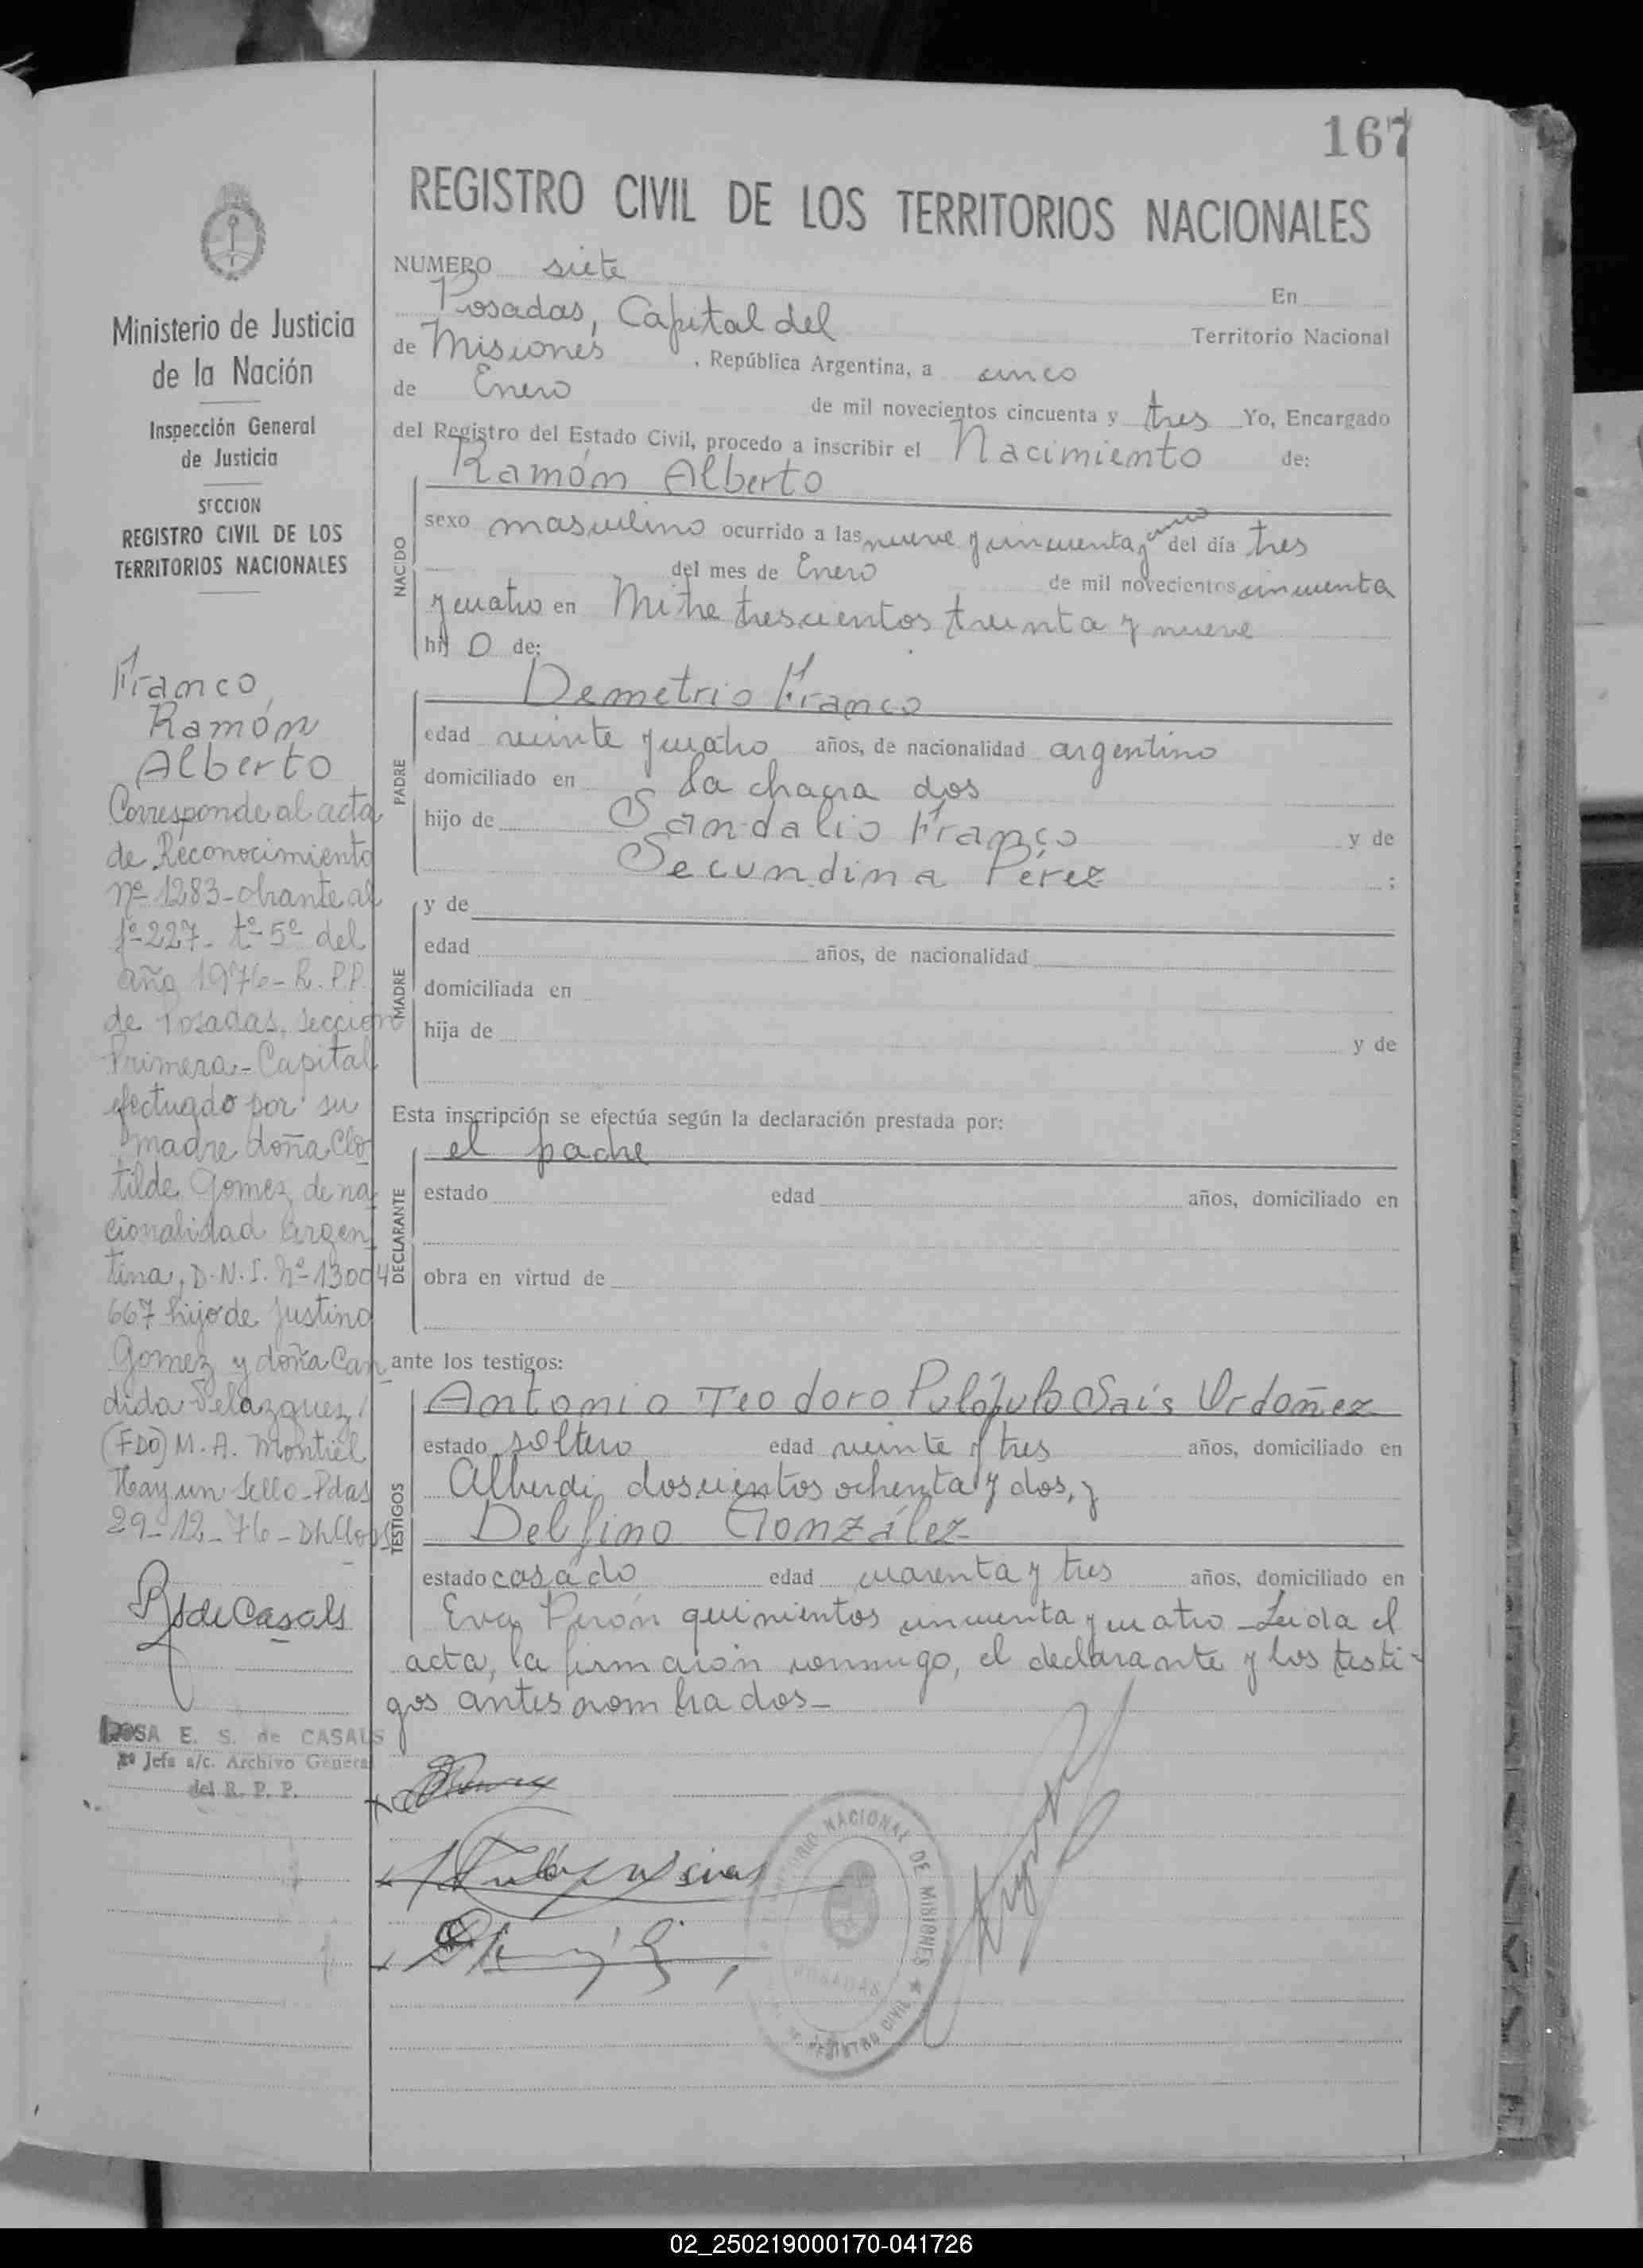 167
REGISTRO CIVIL DE LOS TERRITORIOS NACIONALES
Ministerio de Justicia
de la Nación
Inspección General
de Justicia
SECCION
REGISTRO CIVIL DE LOS
TERRITORIOS NACIONALES
Franco,
Ramón
Alberto
Corresponde al acta
de Reconocimiento
nº 1283 - obrante al
fº 227 - tº 5º del
año 1976 - R. P. P.
de Posadas, Sección
Primera - Capital
efectuado por su
madre doña Clo
tilde Gomez de na
cionalidad Argen
tina, D. N. I. Nº 13004
667 hijo de Justino
Gomez y doña Can
dida Velazquez
(FDO) M. A. Montiel
Hay un Sello - Pdas
29-12-76 -
RSdeCasals
ROSA E. S. de CASALS
2º Jefa a/c. Archivo General
del R. P. P.
NUMERO siete En
Posadas, Capital del Territorio Nacional
de Misiones, República Argentina, a cinco
de Enero de mil novecientos cincuenta y tres Yo, Encargado
del Registro del Estado Civil, procedo a inscribir el Nacimiento de:
NACIDO
Ramón Alberto
sexo masculino ocurrido a las nueve y cincuenta y cinco del día tres
del mes de Enero de mil novecientos cincuenta
y cuatro en Mitre trescientos treinta y nueve
hijo de:
PADRE
Demetrio Franco
edad veinte y cuatro años, de nacionalidad argentino
domiciliado en La chacra dos
hijo de Sandalio Franco y de
Secundina Pérez ;
MADRE
y de
edad años, de nacionalidad
domiciliada en
hija de y de
Esta inscripción se efectúa según la declaración prestada por:
DECLARANTE
el padre
estado edad años, domiciliado en
obra en virtud de
ante los testigos:
TESTIGOS
Antonio Teodoro Pulópulo Sais Ordoñez
estado soltero edad veinte y tres años, domiciliado en
Alberdi doscientos ochenta y dos, y
Delfino González
estado casado edad cuarenta y tres años, domiciliado en
Eva Perón quinientos cincuenta y cuatro - Leida el
acta, la firmaron conmigo, el declarante y los testi-
gos antes nombrados -
TERRITORIO NACIONAL DE MISIONES
POSADAS
REGISTRO CIVIL
02_250219000170-041726